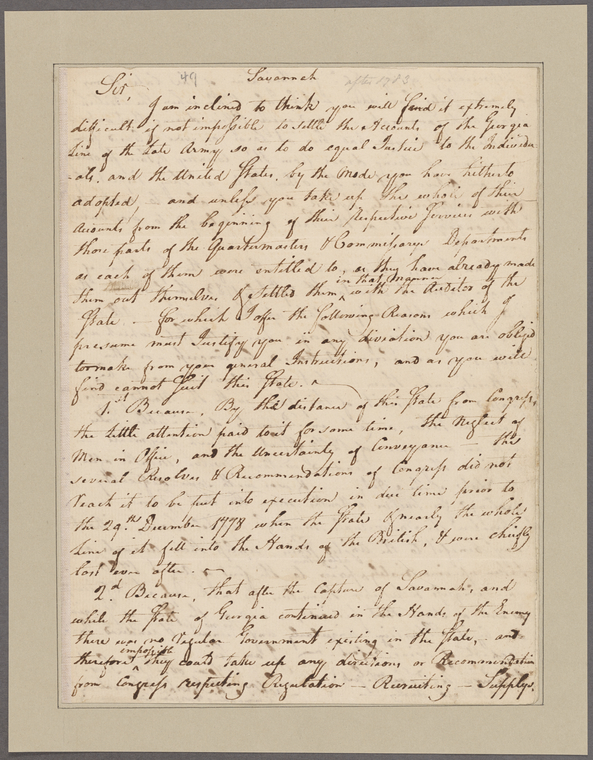 49 Savannah after 1783
Sir,
I am inclined to think you will find it extremely
difficult if not impossible to settle the Accounts of the Georgia
Line of the Late Army so as to do equal Justice to the Individu
-als, and the United States, by the mode you have hitherto
adopted, and unless you take up the whole of their
Accounts from the beginning of their respective Services with
those parts of the Quartermasters & Commissaries Departments
as each of them were entitled to, as they have already made
them out themselves & settled them in that manner with the Auditor of the
State — for which I offer the following Reasons which I
presume must Justify you in any diviation you are obliged
to make from your general Instructions, and as you will
find cannot suit this State. —
1.st Because, By the distance of this State from Congress,
the little attention paid to it for some time, the Neglect of
Men in Office, and the Uncertainty of Conveyance — the
several Resolves & Recommendations of Congress did not
reach it to be put into execution in due time prior to
the 29.th December 1778 when the State & nearly the whole
Line of it fell into the Hands of the British, & were chiefly
lost ever after. —
2.d Because, that after the Capture of Savannah, and
while the State of Georgia continued in the Hands of the Enemy
there was no regular Government existing in the State, — and
therefore impossible they could take up any directions or Recommendation
from Congress respecting Regulation — Recruiting — Supplys,